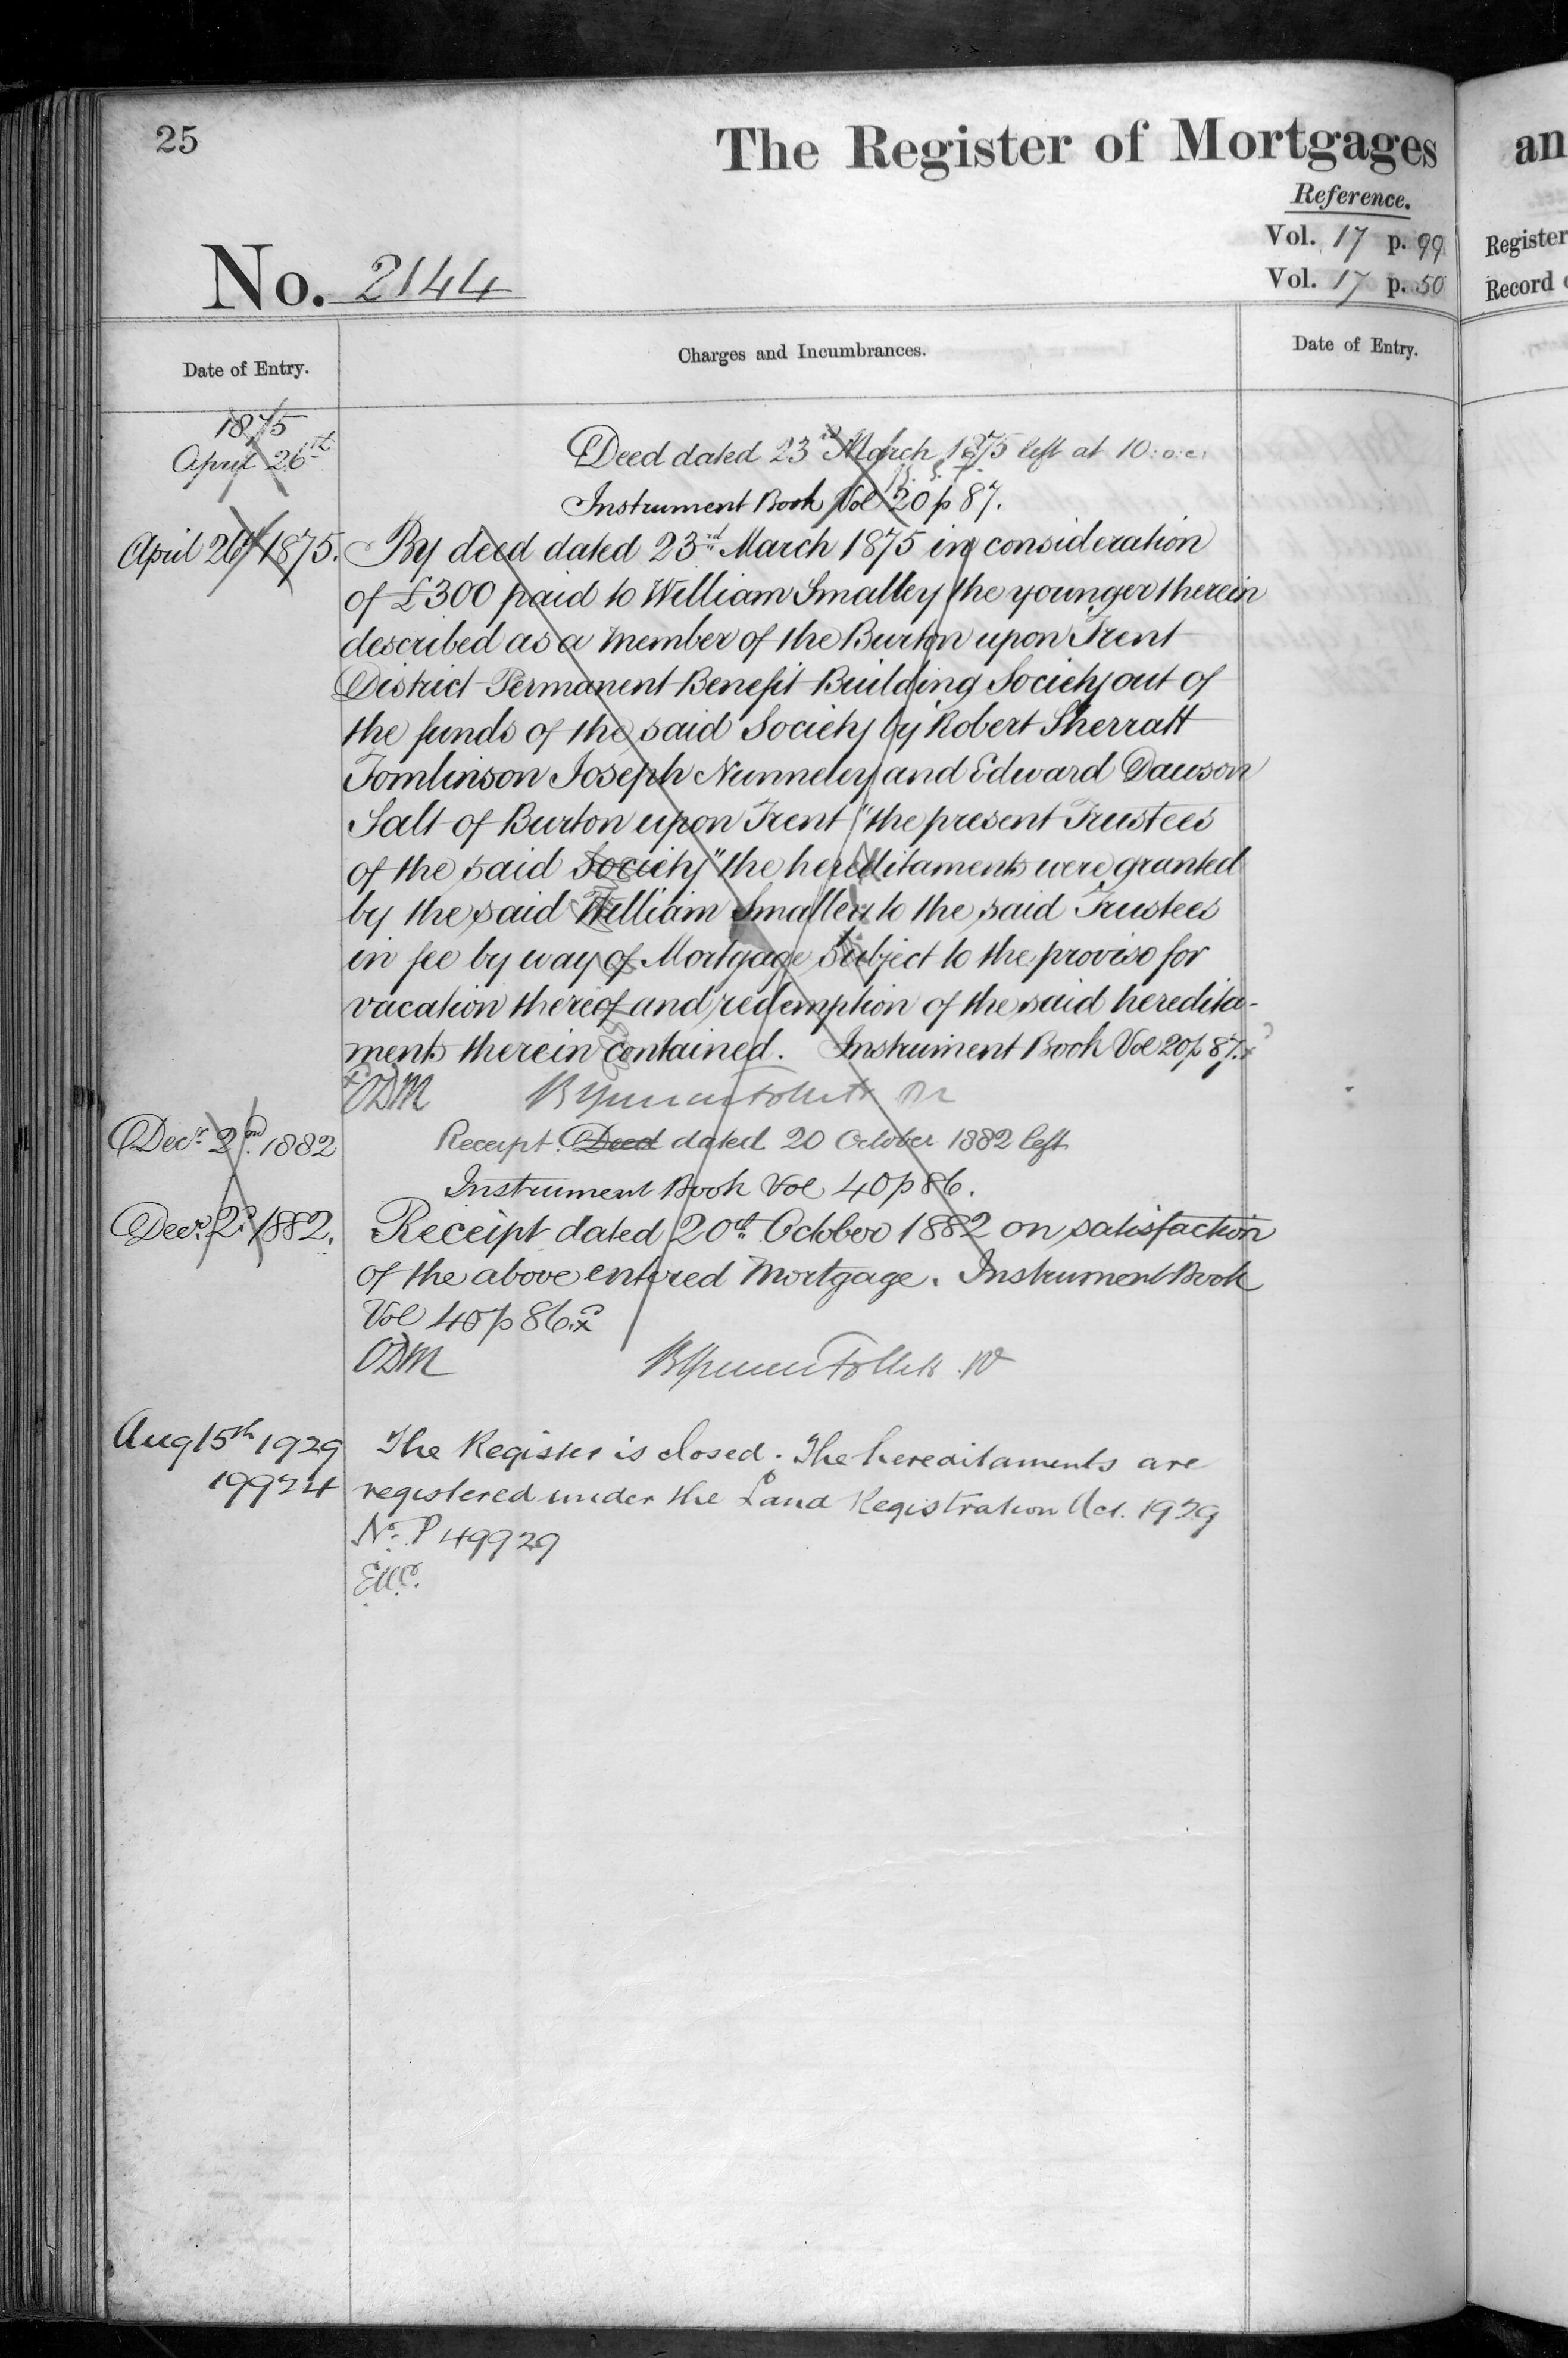 25
The Register of Mortgages
an
Reference.
Vol. 17 p. 99
Register
Vol. 17 p. 50
Record
No. 2144
Date of Entry.
Charges and Incumbrances.
Date of Entry.
1875
April 26th
Deed dated 23rd March 1875 left at 10.o.c.
Instrument Book Vol 20 p 87.
April 26th 1875.
By deed dated 23rd March 1875 in consideration
of £300 paid to William Smalley the younger therein
described as a Member of the Burton upon Trent
District Permanent Benefit Building Society out of
the funds of the said Society by Robert Sherratt
Tomlinson Joseph Nunneley and Edward Dawson
Salt of Burton upon Trent "the present Trustees
of the said Society" the hereditaments were granted
by the said William Smalley to the said Trustees
in fee by way of Mortgage subject to the proviso for
vacation thereof and redemption of the said heredita-
ments therein contained. Instrument Book Vol 20 p 87.
ODM
Decr. 2nd. 1882
Receipt. Deed dated 20 October 1882 left
Instrument Book Vol 40 p 86.
Decr. 2d. 1882.
Receipt dated 20th October 1882 on satisfaction
of the above entered Mortgage. Instrument Book
Vol 40 p 86.
ODM
Aug 15th 1929
The Register is closed. The hereditaments are
19924
registered under the Land Registration Act. 1929
No. P 49929